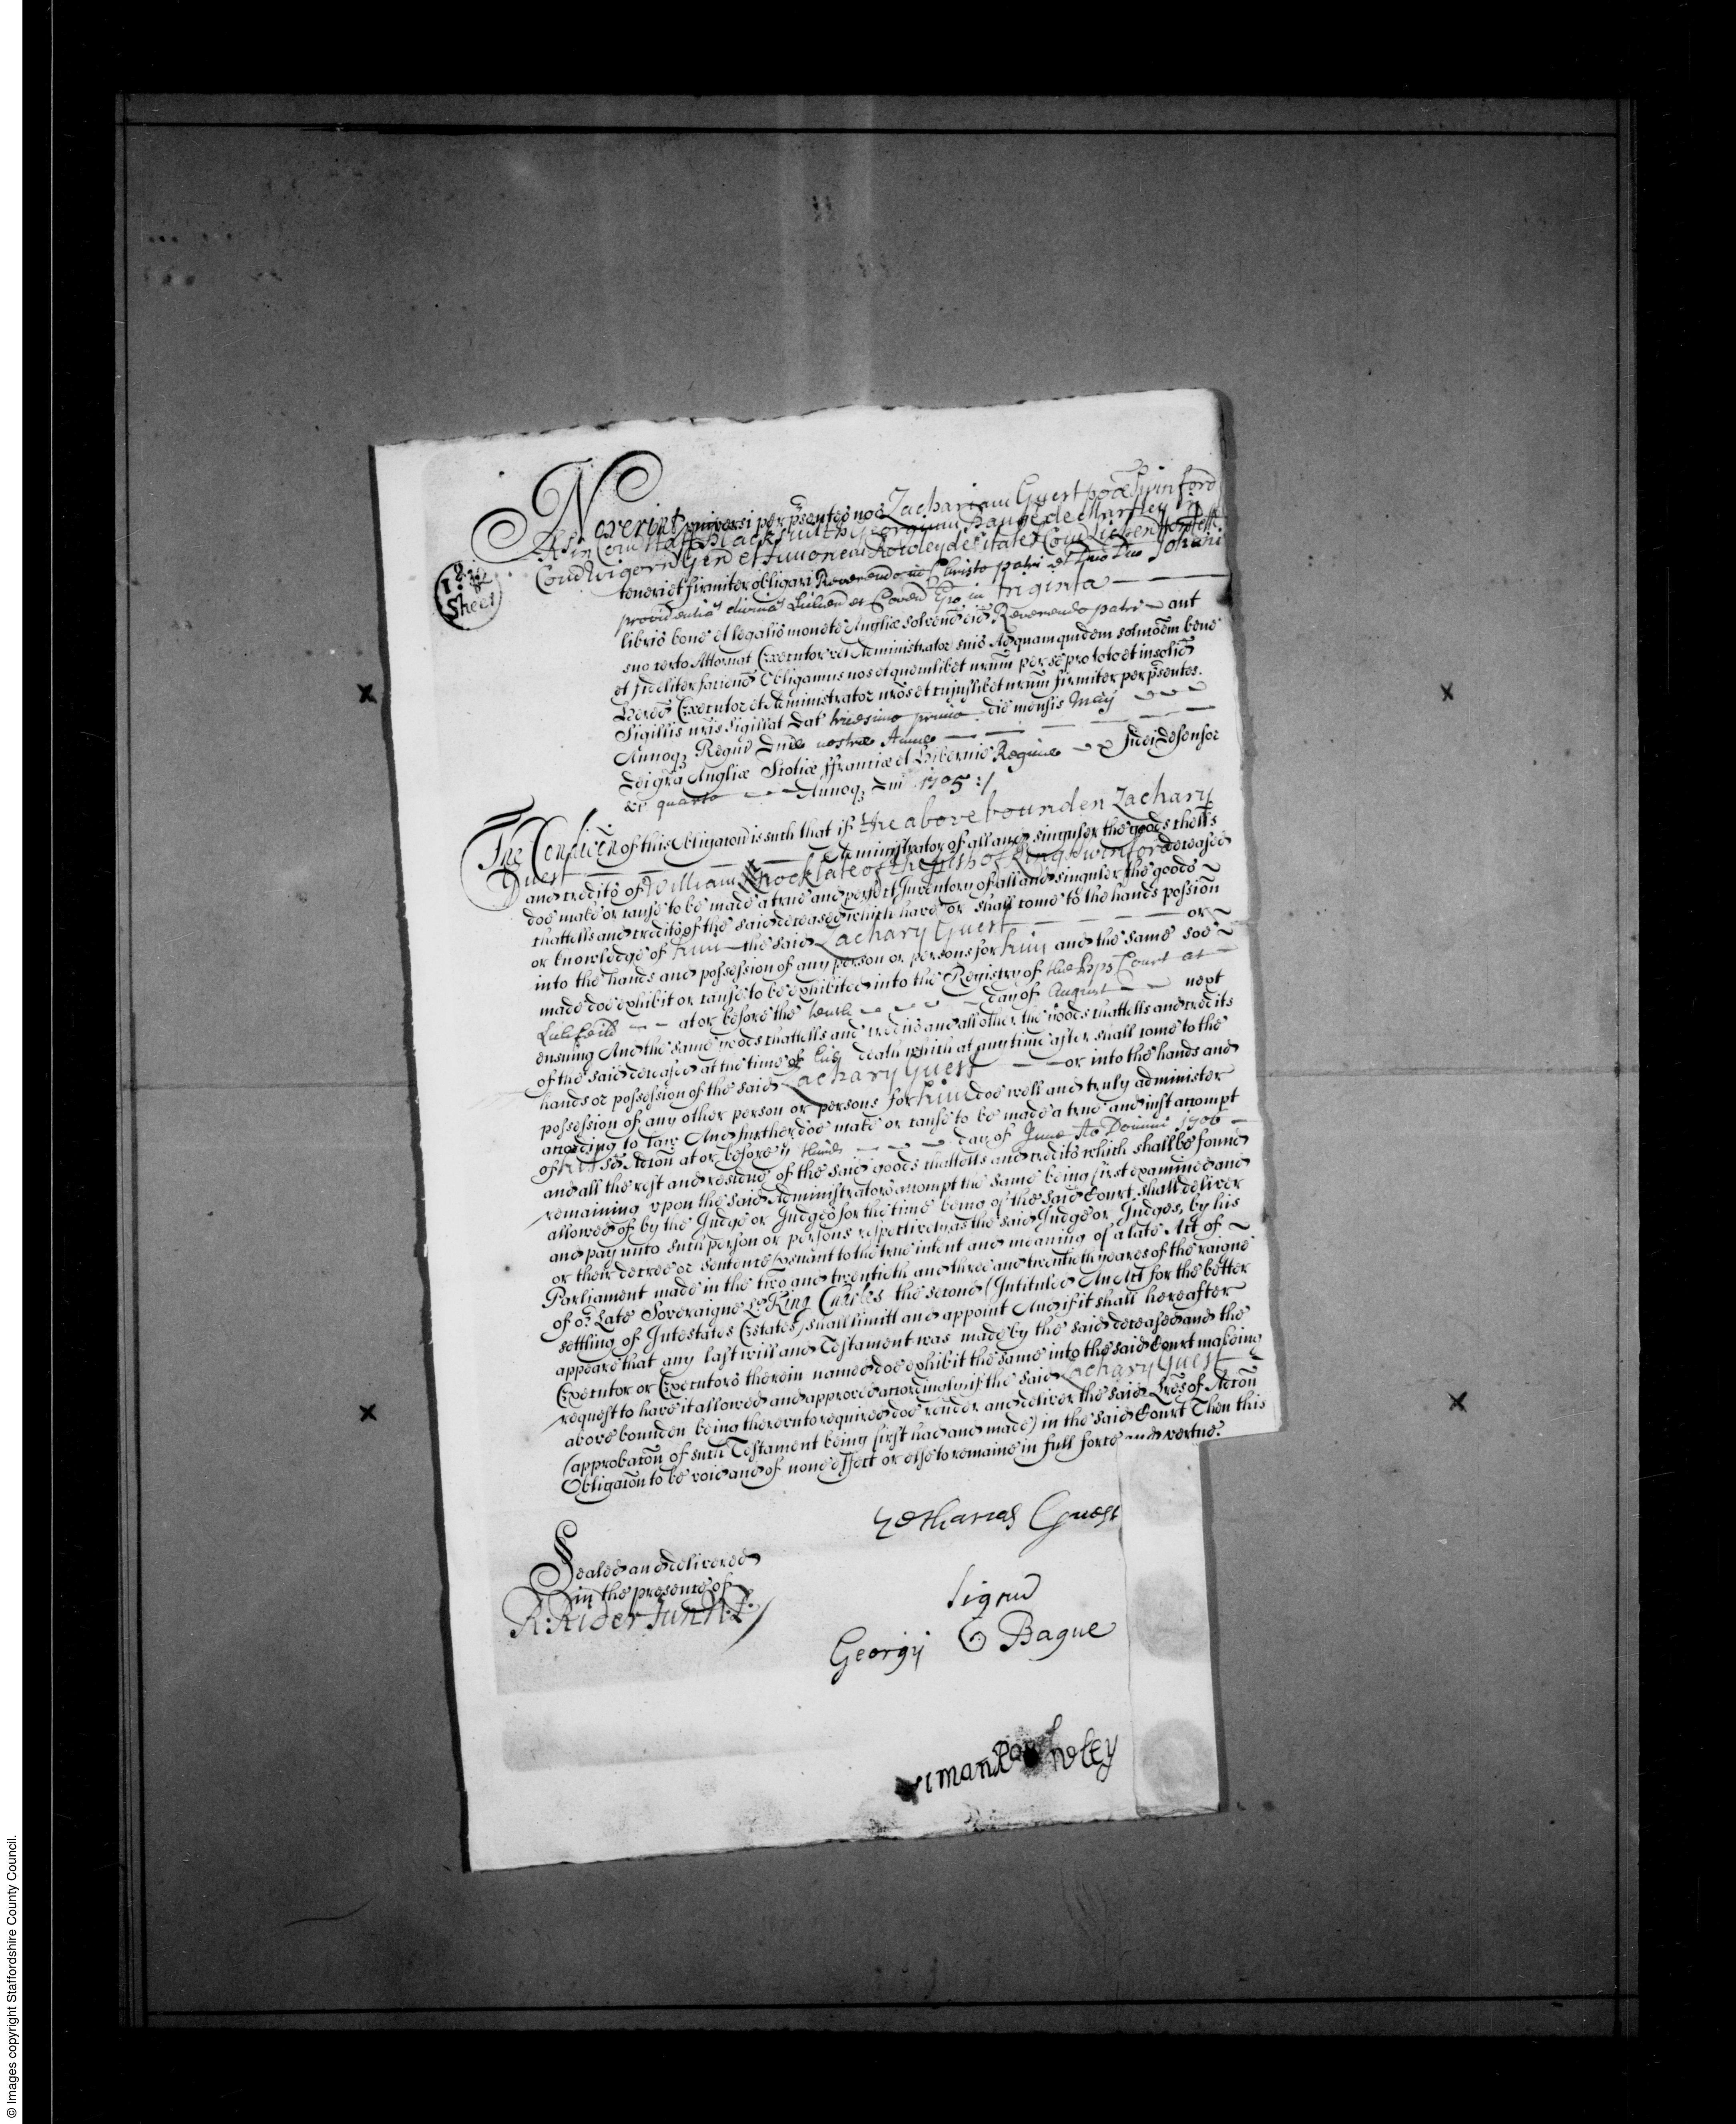 Noverint universi per p̃sentes nos Zachariam Guest de Swinford
in Com Staff Blacksmith Georgium Bague de Martley in
Com Wigorn Gen et Simonem Rowley de Civitate et Com Lichen
teneri et firmiter obligari Reverendo in Christo patri et Dno Dno Johanni
providentia divina Lichen et Coven Epo in triginta
libris bone et legalis monete Angliæ solvend eid Reverendo patri aut
suo certo Attornat Executor vel Administrator suis Ad quam quidem solucõem bene
et fideliter faciend Obligamus nos et quemlibet nrũm per se pro toto et insolid
Hered Executor et Administrator nrõs et cujuslibet nrũm firmiter per p̃sentes.
Sigillis nr̃is Sigillat Dat tricesimo primo die mensis Maij
Annoq Regni Dnæ nostræ Annæ
Dei gr̃a Angliæ Scotiæ ffranciæ et Hiberniæ Reginæ fidei Defensor
&c quarto Annoq Dni 1705:/
18
Sheet
The Condicẽn of this Obligacon is such that if the above bounden Zachary
Guest Administrator of all and singuler the goods chells
and credits of William late of the p̃ish of Kingswinford deceased
doe make or cause to be made a true and perfect Inventory of all and singuler the goods
chattells and credits of the said deceased which have or shall come to the hands possion
or knowledge of him the said Zachary Guest or
into the hands and possession of any person or persons for him and the same soe
made doe exhibit or cause to be exhibited into the Registry of the Bps Court at
Lichfeild at or before the tenth day of August next
ensuing And the same goods chattells and credits and all other the goods chattells and credits
of the said deceased at the time of his death which at any time after shall come to the
hands or possession of the said Zachary Guest or into the hands and
possession of any other person or persons for him doe well and truly administer
according to law And further doe make or cause to be made a true and just accompt
of his sd Acc̃on at or before y day of June Ao Domini 1706
and all the rest and residue of the said goods chattells and credits which shall be found
remaining upon the said Administrators accompt the same being first examined and
allowed of by the Judge or Judges for the time being of the said Court shall deliver
and pay unto such person or persons respectively as the said Judge or Judges, by his
or their decree or sentence (psuant to the true intent and meaning of a late Act of
Parliament made in the two and twentieth and three and twentieth yeares of the raigne
of or Late Soveraigne Ld King Charles the second (Intituled An Act for the better
settling of Intestates Estates) shall limitt and appoint And if it shall hereafter
appeare that any last will and Testament was made by the said deceased and the
Executor or Executors therein named doe exhibit the same into the said Court makeing
request to have it allowed and approved accordingly if the said Zachary Guest
above bounden being thereunto required doe render and deliver the said Lr̃es of Acc̃on
(approbacõn of such Testament being first had and made) in the said Court Then this
Obligacõn to be void and of none effect or else to remaine in full force and vertue.
Zetharias Guest
Sealed and delivered
in the presence of
R: Rider Jun N: P:
Signu
Georgij Bague